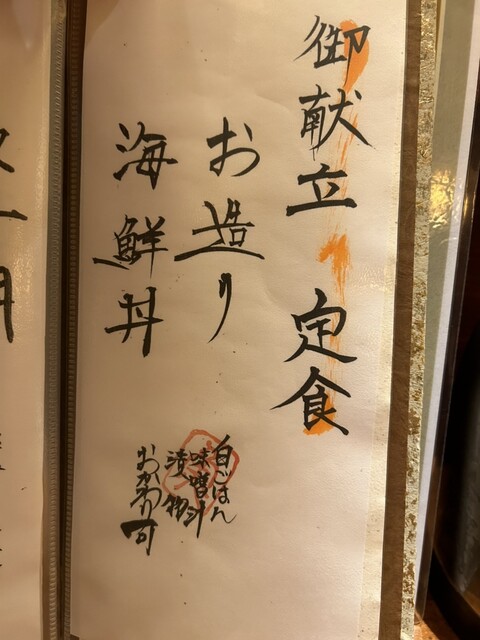 御献立 定食
お造り
海鮮丼
白ごはん
味噌汁
漬物
おかわり可